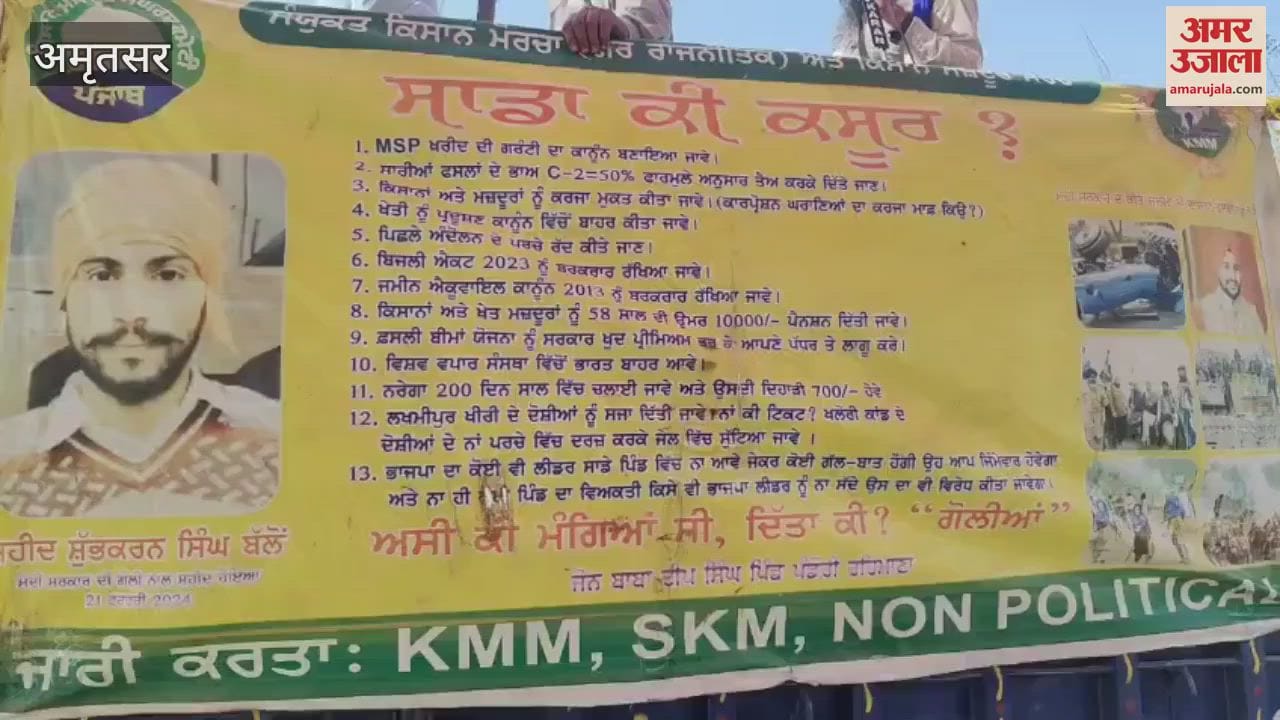 अमृतसर
अमर
उजाला
amarujala.com
ਪੰਜਾਬ
ਸੰਯੁਕਤ ਕਿਸਾਨ ਮੋਰਚਾ ਰਾਜਨੀਤਿਕ) ਅਤੇ ਕਿਸਾਨ ਮਜ਼ਦੂਰ
KMM
ਸਾਡਾ ਕੀ ਕਸੂਰ ?
1. MSP ਖਰੀਦ ਦੀ ਗਰੰਟੀ ਦਾ ਕਾਨੂੰਨ ਬਣਾਇਆ ਜਾਵੇ।
2. ਸਾਰੀਆਂ ਫਸਲਾਂ ਦੇ ਭਾਅ C-2=50% ਫਾਰਮੂਲੇ ਅਨੁਸਾਰ ਤੈਅ ਕਰਕੇ ਦਿੱਤੇ ਜਾਣ।
3. ਕਿਸਾਨਾਂ ਅਤੇ ਮਜ਼ਦੂਰਾਂ ਨੂੰ ਕਰਜਾ ਮੁਕਤ ਕੀਤਾ ਜਾਵੇ। (ਕਾਰਪ੍ਰੇਸ਼ਨ ਘਰਾਣਿਆਂ ਦਾ ਕਰਜਾ ਮਾਫ਼ ਕਿਉਂ?)
4. ਖੇਤੀ ਨੂੰ ਪ੍ਰਦੂਸ਼ਣ ਕਾਨੂੰਨ ਵਿੱਚੋਂ ਬਾਹਰ ਕੀਤਾ ਜਾਵੇ।
5. ਪਿਛਲੇ ਅੰਦੋਲਨ ਦੇ ਪਰਚੇ ਰੱਦ ਕੀਤੇ ਜਾਣ।
6. ਬਿਜਲੀ ਐਕਟ 2023 ਨੂੰ ਬਰਕਰਾਰ ਰੱਖਿਆ ਜਾਵੇ।
7. ਜਮੀਨ ਐਕੂਵਾਇਲ ਕਾਨੂੰਨ 2013 ਨੂੰ ਬਰਕਰਾਰ ਰੱਖਿਆ ਜਾਵੇ।
8. ਕਿਸਾਨਾਂ ਅਤੇ ਖੇਤ ਮਜ਼ਦੂਰਾਂ ਨੂੰ 58 ਸਾਲ ਦੀ ਉਮਰ 10000/- ਪੈਨਸ਼ਨ ਦਿੱਤੀ ਜਾਵੇ।
9. ਫ਼ਸਲੀ ਬੀਮਾਂ ਯੋਜਨਾ ਨੂੰ ਸਰਕਾਰ ਖੁਦ ਪ੍ਰੀਮਿਅਮ ਆਪਣੇ ਪੱਧਰ ਤੇ ਲਾਗੂ ਕਰੇ।
10. ਵਿਸ਼ਵ ਵਪਾਰ ਸੰਸਥਾ ਵਿੱਚੋਂ ਭਾਰਤ ਬਾਹਰ ਆਵੇ।
11. ਨਰੇਗਾ 200 ਦਿਨ ਸਾਲ ਵਿੱਚ ਚਲਾਈ ਜਾਵੇ ਅਤੇ ਉਸਦੀ ਦਿਹਾੜੀ 700/- ਹੋਵੇ
12. ਲਖਮੀਪੁਰ ਖੀਰੀ ਦੇ ਦੋਸ਼ੀਆਂ ਨੂੰ ਸਜਾ ਦਿੱਤੀ ਜਾਵੇ ਨਾਂ ਕੀ ਟਿਕਟ? ਖਲੋਰੀ ਕਾਂਡ ਦੇ
ਦੋਸ਼ੀਆਂ ਦੇ ਨਾਂ ਪਰਚੇ ਵਿੱਚ ਦਰਜ਼ ਕਰਕੇ ਜੇਲ ਵਿੱਚ ਸੁੱਟਿਆ ਜਾਵੇ ।
13. ਭਾਜਪਾ ਦਾ ਕੋਈ ਵੀ ਲੀਡਰ ਸਾਡੇ ਪਿੰਡ ਵਿੱਚ ਨਾ ਆਵੇ ਜੇਕਰ ਕੋਈ ਗੱਲ-ਬਾਤ ਹੋਂਗੀ ਉਹ ਆਪ ਜਿੰਮੇਵਾਰ ਹੋਵੇਗਾ
ਅਤੇ ਨਾ ਹੀ ਪਿੰਡ ਦਾ ਵਿਅਕਤੀ ਕਿਸੇ ਵੀ ਭਾਜਪਾ ਲੀਡਰ ਨੂੰ ਨਾ ਸੱਦੇ ਉਸ ਦਾ ਵੀ ਵਿਰੋਧ ਕੀਤਾ ਜਾਵੇਗਾ।
ਅਸੀ ਕੀ ਮੰਗਿਆਂ ਸੀ, ਦਿੱਤਾ ਕੀ? “ਗੋਲੀਆਂ”
ਜੋਨ ਬਾਬਾ ਦੀਪ ਸਿੰਘ ਪਿੰਡ ਪੰਡੋਰੀ
ਸ਼ੁੱਭਕਰਨ ਸਿੰਘ ਬੱਲੋਂ
ਸਰਕਾਰ ਦੀ ਗੋਲੀ ਨਾਲ ਸ਼ਹੀਦ ਹੋਇਆ
21 ਫਰਵਰੀ 2024
ਜਾਰੀ ਕਰਤਾ: KMM, SKM, NON POLITICAL